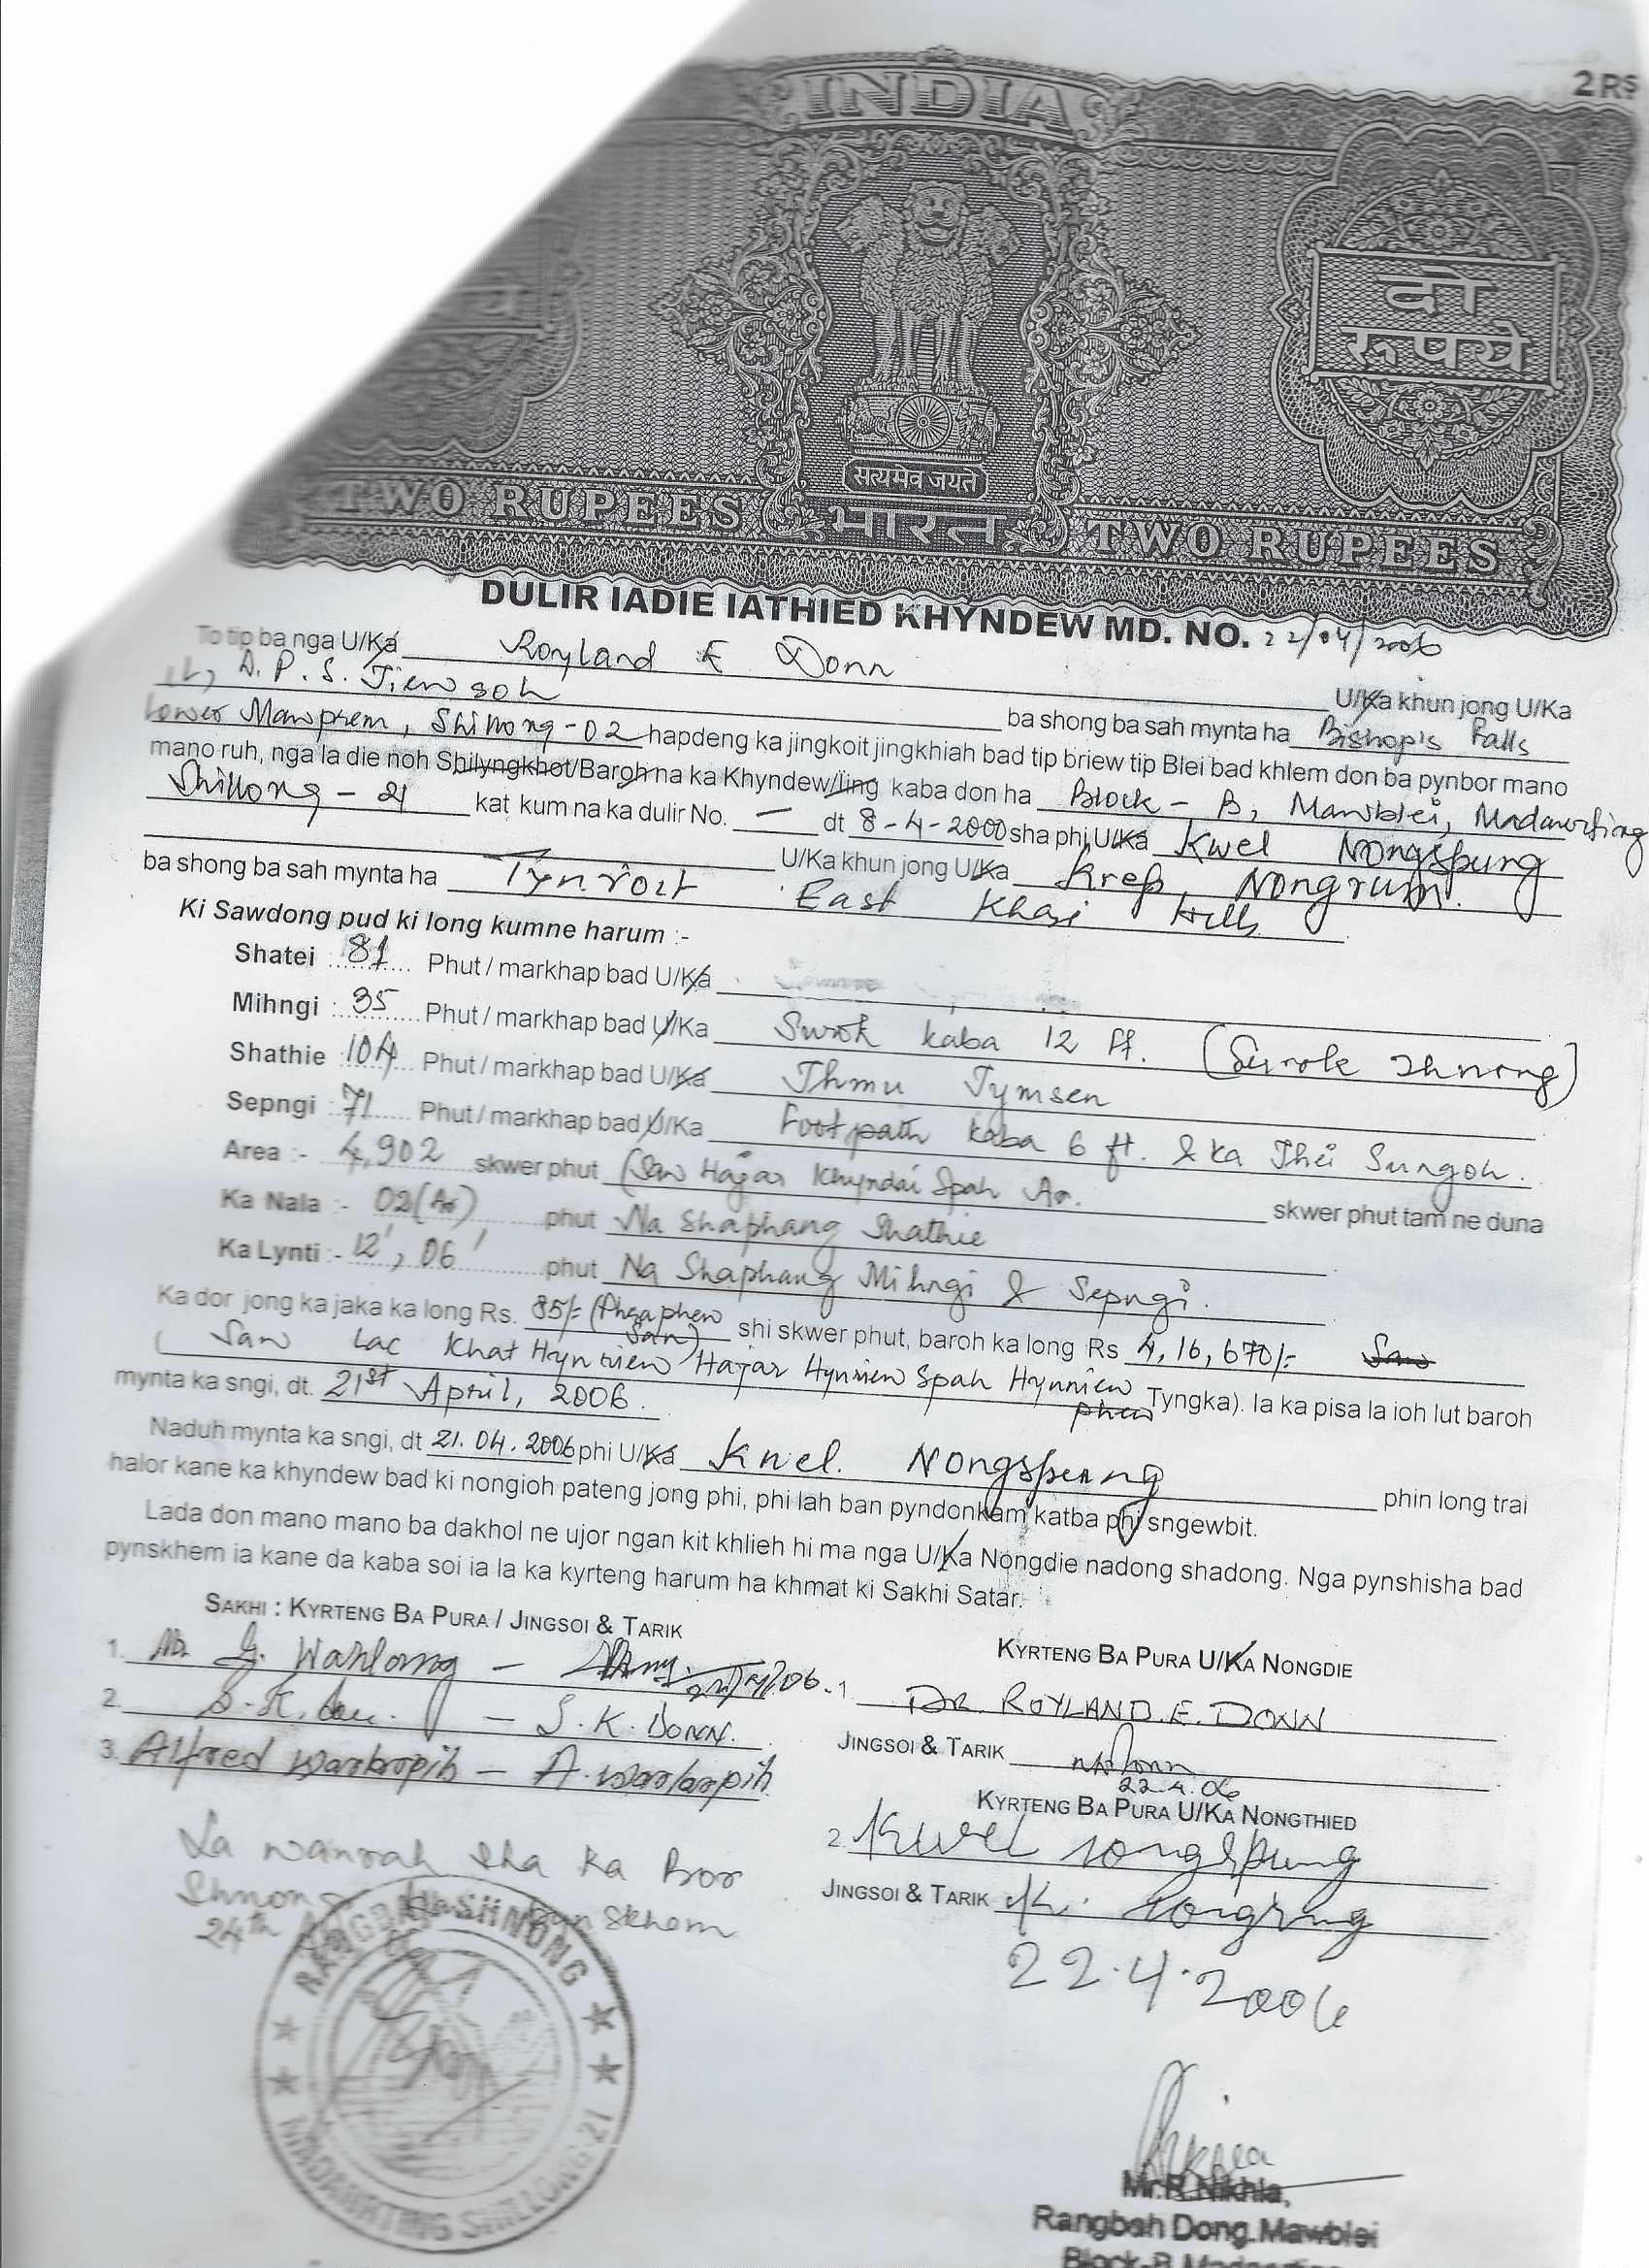 2 RS
INDIA
दो
रूपये
सत्यमेव जयते
TWO RUPEES भारत TWO RUPEES
DULIR IADIE IATHIED KHYNDEW MD. NO. 22/04/2006
To tip ba nga U/Ka Royland E Donn U/Ka khun jong U/Ka
(L) D. P. S. Jiewsoh ba shong ba sah mynta ha Bishop's Falls
Lower Mawprem, Shillong-02 hapdeng ka jingkoit jingkhiah bad tip briew tip Blei bad khlem don ba pynbor mano
mano ruh, nga la die noh Shilyngkhot/Baroh na ka Khyndew/Iing kaba don ha Block - B, Mawblei, Madanrting
Shillong - 21 kat kum na ka dulir No. — dt 8-4-2000 sha phi U/Ka Kwel Nongspung
U/Ka khun jong U/Ka Krep Nongrum.
ba shong ba sah mynta ha Tynroit East Khasi Hills
Ki Sawdong pud ki long kumne harum :-
Shatei : 81 Phut / markhap bad U/Ka
Mihngi : 35 Phut / markhap bad U/Ka Surok kaba 12 ft. (Surok Shnong)
Shathie : 104 Phut / markhap bad U/Ka Thmu Tymsen
Sepngi : 71 Phut / markhap bad U/Ka Footpath kaba 6 ft. & ka Thei Sungoh.
Area :- 4,902 skwer phut (Saw Hajar Khyndai Spah Ar. skwer phut tam ne duna
Ka Nala :- 02 (Ar) phut Na Shaphang Shathie
Ka Lynti :- 12', 06' phut Na Shaphang Mihngi & Sepngi.
Ka dor jong ka jaka ka long Rs. 85/- (Phra phew San) shi skwer phut, baroh ka long Rs 4,16,670/- Saw
( Saw Lac Khat Hynriew Hajar Hynriew Spah Hynñiew phew Tyngka). Ia ka pisa la ioh lut baroh
mynta ka sngi, dt. 21st April, 2006.
Naduh mynta ka sngi, dt 21.04.2006 phi U/Ka Kwel. Nongspung phin long trai
halor kane ka khyndew bad ki nongioh pateng jong phi, phi lah ban pyndonkam katba phi sngewbit.
Lada don mano mano ba dakhol ne ujor ngan kit khlieh hi ma nga U/Ka Nongdie nadong shadong. Nga pynshisha bad
pynskhem ia kane da kaba soi ia la ka kyrteng harum ha khmat ki Sakhi Satar.
SAKHI : KYRTENG BA PURA / JINGSOI & TARIK
KYRTENG BA PURA U/KA NONGDIE
1. Mr. G. Warlong -
2. - S. K. DONN.
3. Alfred Warbropih - A. Warbropih
1. DR. ROYLAND. E. DONN
JINGSOI & TARIK
22.4.06
KYRTENG BA PURA U/KA NONGTHIED
2. Kwel nongspung
JINGSOI & TARIK
22.4.2006
La wanrah sha ka Bor
Shnong skhem
24th
RANGBAH SHNONG
MADANRTING SHILLONG-21
Mr.R.Nikhla,
Rangbah Dong.Mawblei
Block-B